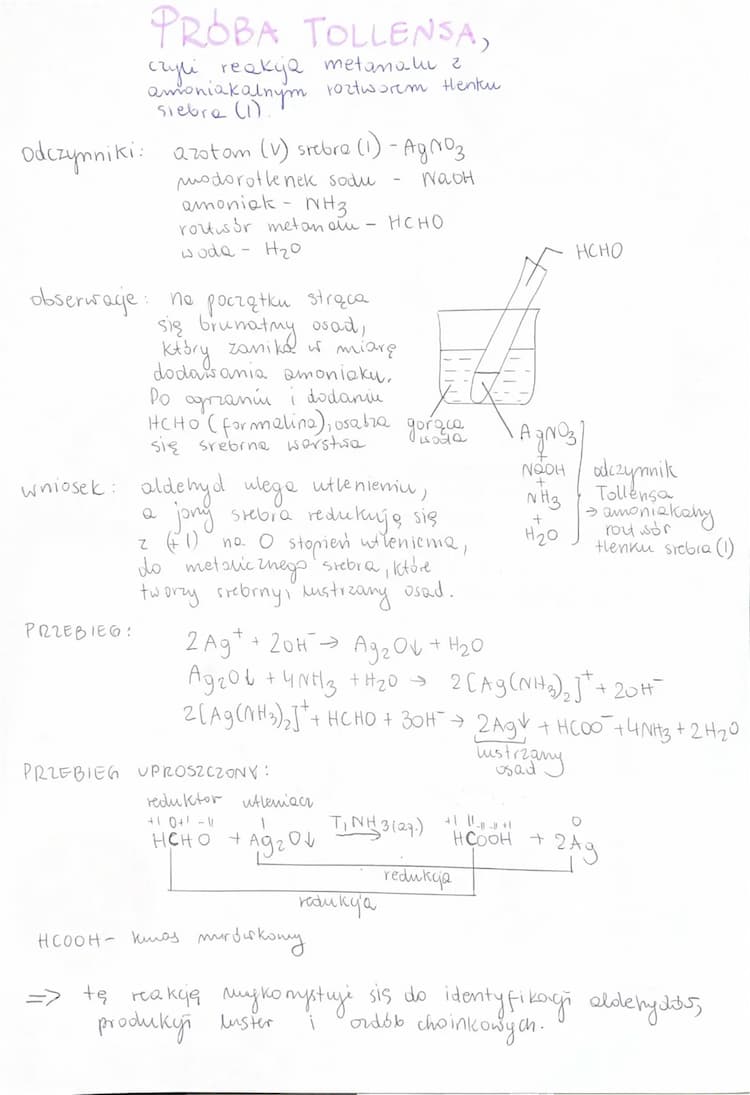 PRÓBA TOLLENSA,
czyli reakcja metanalu z
amoniakalnym roztworem tlenku
srebra (I).
Odczynniki: azotan (V) srebra (I) - AgNO3
wodorotlenek sodu - NaOH
amoniak - NH3
roztwór metanalu - HCHO
woda - H2O
HCHO
obserwacje: na początku strąca
się brunatny osad,
który zanika w miarę
dodawania amoniaku.
Po ogrzaniu i dodaniu
HCHO (formalina), osadza
się srebrna warstwa
gorąca
woda
AgNO3
+
NaOH
+
NH3
+
H2O
odczynnik
Tollensa
→ amoniakalny
roztwór
tlenku srebra (I)
wniosek: aldehyd ulega utlenieniu,
a jony srebra redukują się
z (+I) na 0 stopień utlenienia,
do metalicznego srebra, które
tworzy srebrny, lustrzany osad.
PRZEBIEG:
2Ag⁺ + 2OH⁻ → Ag2O↓ + H2O
Ag2O↓ + 4NH3 + H2O → 2[Ag(NH3)2]⁺ + 2OH⁻
2[Ag(NH3)2]⁺ + HCHO + 3OH⁻ → 2Ag↓ + HCOO⁻ + 4NH3 + 2H2O
lustrzany
osad
PRZEBIEG UPROSZCZONY:
reduktor utleniacz
+I 0 +I -II I +I II -II -II +I 0
HCHO + Ag2O↓ T, NH3(aq.) → HCOOH + 2Ag
redukcja
redukcja
HCOOH - kwas mrówkowy
=> tę reakcję wykorzystuje się do identyfikacji aldehydów,
produkcji luster i ozdób choinkowych.